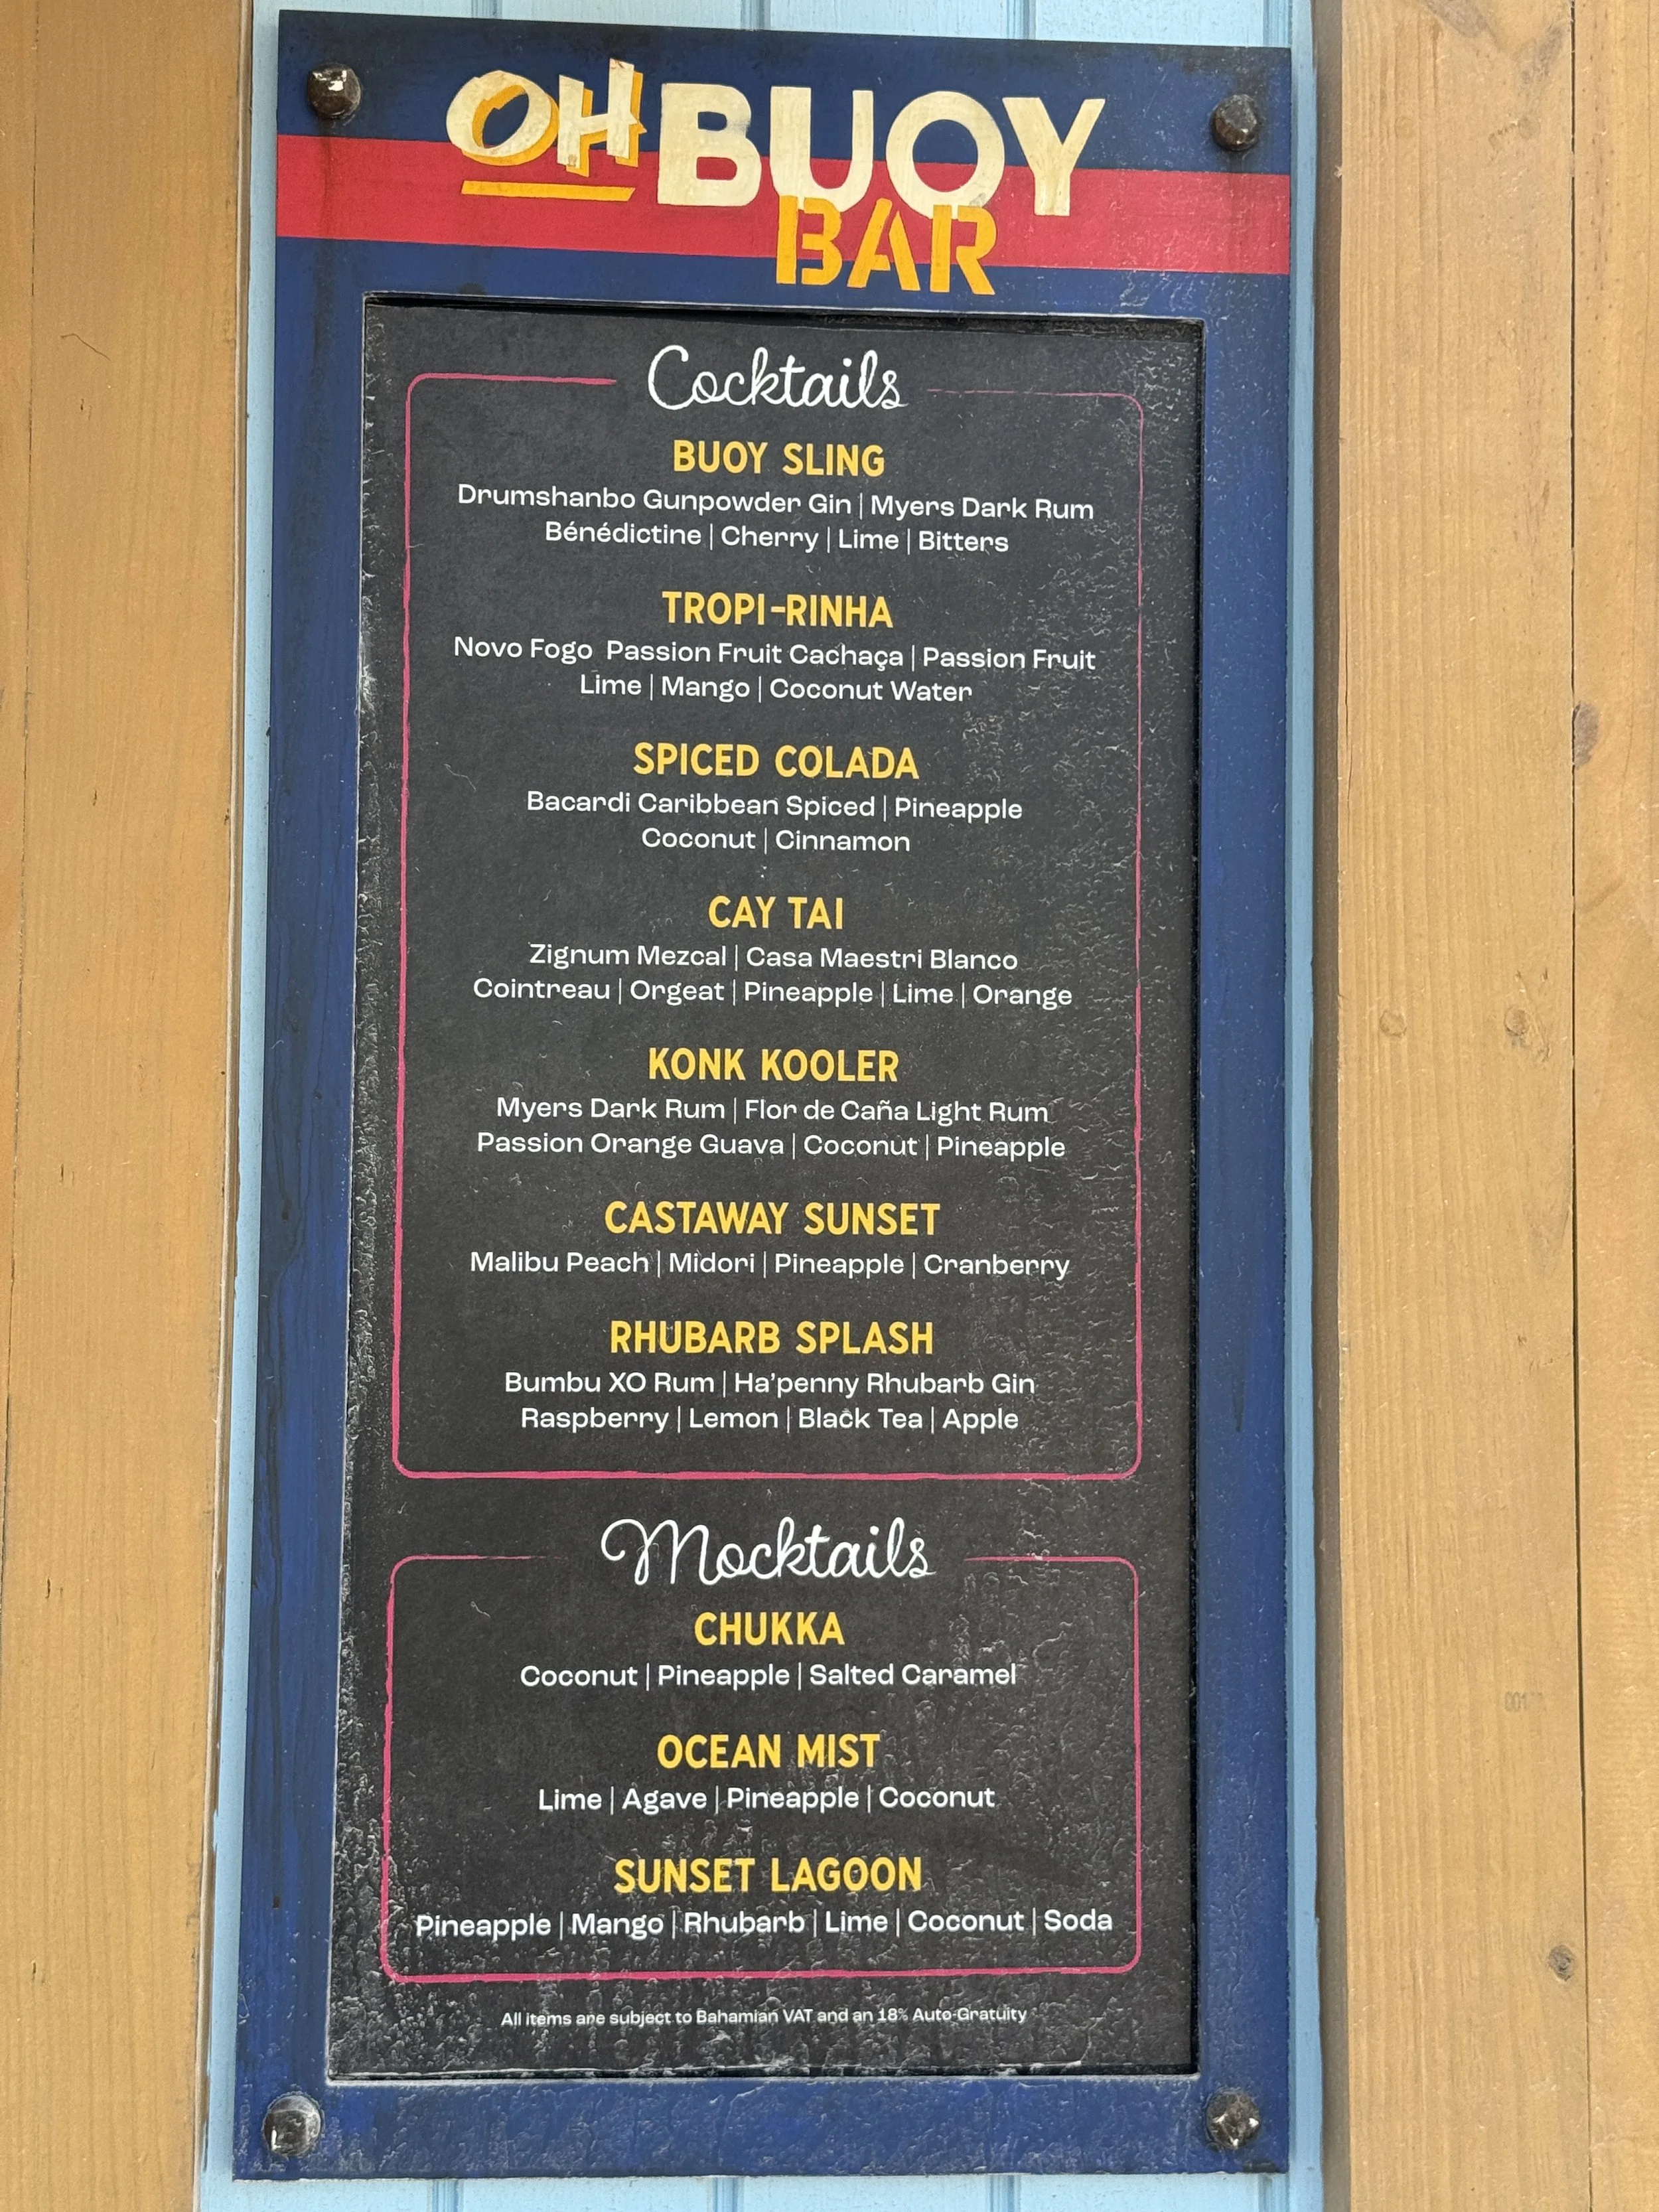 OH BUOY
BAR
Cocktails
BUOY SLING
Drumshanbo Gunpowder Gin | Myers Dark Rum
Bénédictine | Cherry | Lime | Bitters
TROPI-RINHA
Novo Fogo Passion Fruit Cachaça | Passion Fruit
Lime | Mango | Coconut Water
SPICED COLADA
Bacardi Caribbean Spiced | Pineapple
Coconut | Cinnamon
CAY TAI
Zignum Mezcal | Casa Maestri Blanco
Cointreau | Orgeat | Pineapple | Lime | Orange
KONK KOOLER
Myers Dark Rum | Flor de Caña Light Rum
Passion Orange Guava | Coconut | Pineapple
CASTAWAY SUNSET
Malibu Peach | Midori | Pineapple | Cranberry
RHUBARB SPLASH
Bumbu XO Rum | Ha'penny Rhubarb Gin
Raspberry | Lemon | Black Tea | Apple
Mocktails
CHUKKA
Coconut | Pineapple | Salted Caramel
OCEAN MIST
Lime | Agave | Pineapple | Coconut
SUNSET LAGOON
Pineapple | Mango | Rhubarb | Lime | Coconut | Soda
All items are subject to Bahamian VAT and an 18% Auto-Gratuity